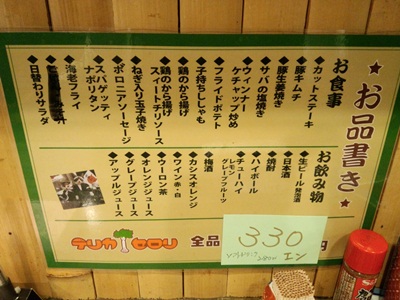 ★お品書き★
お食事
◆カットステーキ
◆豚キムチ
◆豚生姜焼き
◆サバの塩焼き
◆ウィンナー
ケチャップ炒め
◆フライドポテト
◆子持ちししゃも
◆鶏のから揚げ
◆鶏のから揚げ
スィートチリソース
◆ねぎ入り玉子焼き
◆ボロニアソーセージ
◆海老フライ
◆スパゲッティ
ナポリタン
◆日替わりサラダ
お飲み物
◆生ビール 発泡酒
◆日本酒
◆焼酎
◆ハイボール
◆チューハイ
レモン
グレープフルーツ
◆梅酒
◆カシスオレンジ
◆ワイン 赤・白
◆ウーロン茶
◆オレンジジュース
◆グレープジュース
◆アップルジュース
全品
330
エン
円